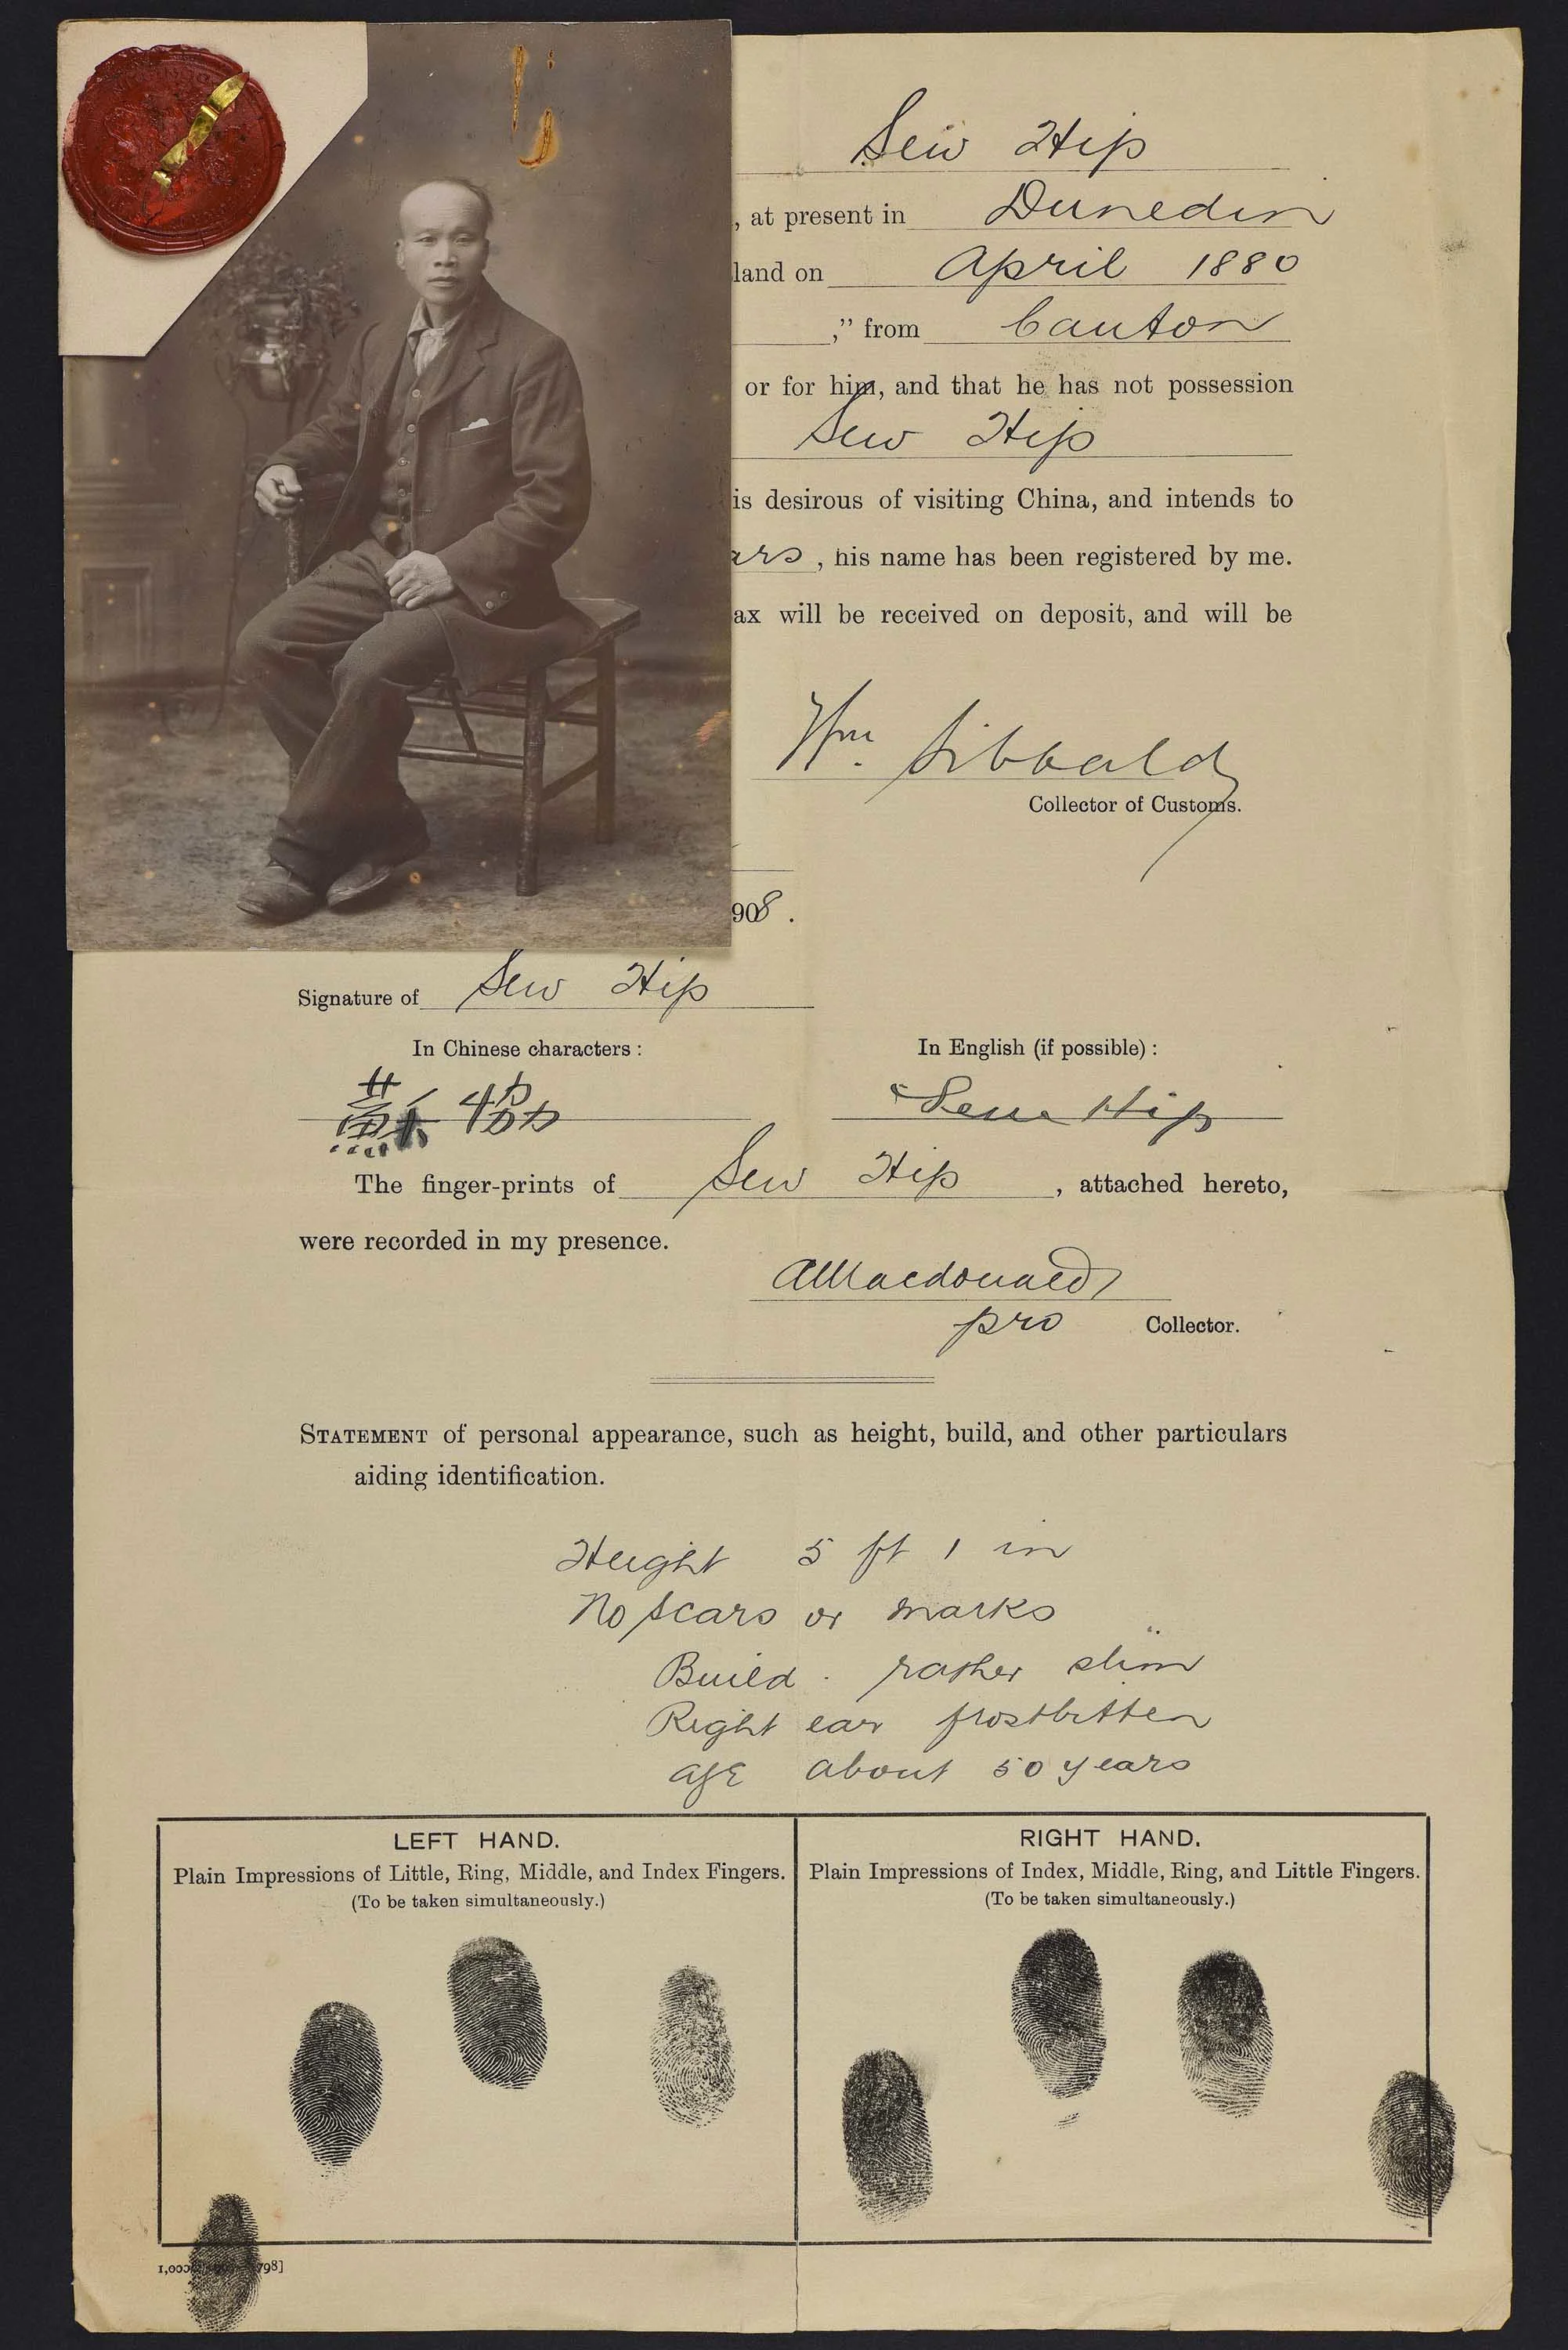 Sew Hip
, at present in Dunedin
land on April 1880
," from Canton
or for him, and that he has not possession
Sew Hip
is desirous of visiting China, and intends to
ars, his name has been registered by me.
ax will be received on deposit, and will be
Wm. Sibbald
Collector of Customs.
908.
Signature of Sew Hip
In Chinese characters: In English (if possible):
Sew Hip
The finger-prints of Sew Hip, attached hereto,
were recorded in my presence.
AMacdonald
pro Collector.
STATEMENT of personal appearance, such as height, build, and other particulars
aiding identification.
Height 5 ft 1 in
No scars or marks
Build . rather slim
Right ear frostbitten
age about 50 years
LEFT HAND.
Plain Impressions of Little, Ring, Middle, and Index Fingers.
(To be taken simultaneously.)
RIGHT HAND.
Plain Impressions of Index, Middle, Ring, and Little Fingers.
(To be taken simultaneously.)
798]